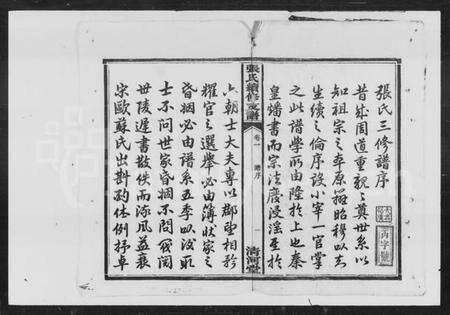 張氏三修譜序
昔成周道重親親奠世系以
知祖宗之本原辨昭穆以志
生續之倫序設小宰一官掌
之此譜學所由隆於上也秦
皇燔書而宗法廢浸淫至於
張氏續修支譜
卷一
譜序
一
清河堂
六朝士大夫專以郡望相矜
耀官之選舉必由簿狀家之
昏姻必由譜系五季以後取
士不問世家昏姻不問閥閱
世陵遲書散佚而流風益衰
宋歐蘇氏出斟酌體例抒卓